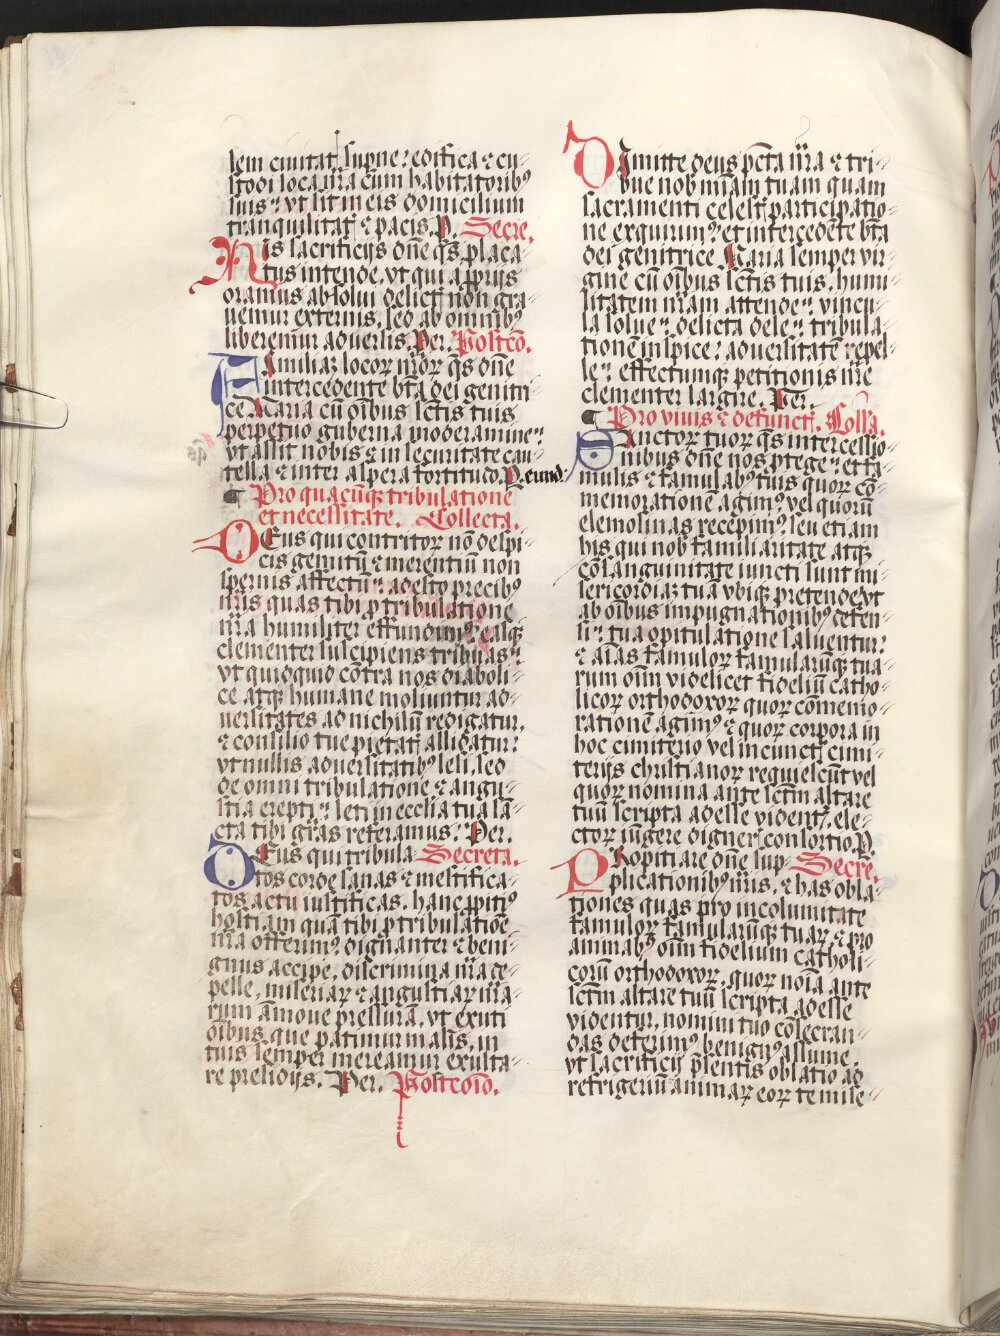 lem ciuitat̄ sup̄ne: edifica ⁊ cu-
stodi loca n̄ra cum habitatoribꝰ
suis: vt sit in eis domicilium
tranquilitat̄ ⁊ pacis. P. Secre.
His sacrificijs dn̄e q̄s placa-
tus intende, vt qui a ꝓprijs
oramus absolui delict̄ non gra-
uemur externis, sed ab omnibꝰ
liberemur aduersis. Per. Postco̅.
Familiaꝝ locoꝝ nr̄oꝝ q̄s dn̄e
intercedente bt̄a dei genitri-
ce Maria cū oībus sc̄tis tuis
perpetuo guberna moderamine:
vt assit nobis ⁊ in securitate cau-
tella ⁊ inter aspera fortitudo. P. eund.
¶ Pro quacūqꝫ tribulatione
et necessitate. Collecta.
DEus qui contritoꝝ nō despi-
cis gemitū ⁊ merentiū non
spernis affectū: adesto precibꝰ
nr̄is quas tibi ꝓ tribulatione
nr̄a humiliter effundimꝰ: easqꝫ
clementer suscipiens tribuas:
vt quidquid cōtra nos diaboli-
ce atqꝫ humane moliuntur ad-
uersitates ad nichilū redigatur,
⁊ consilio tue pietat̄ allidatur:
vt nullis aduersitatibꝰ lesi, sed
de omni tribulatione ⁊ angu-
stia erepti: leti in ecclīa tua sā-
cta tibi gr̄as referamus. Per.
DEus qui tribula- Secreta.
tos corde sanas ⁊ mestifica-
tos actu iustificas. hanc ꝓpitiꝰ
hostiam quā tibi ꝓ tribulatiōe
nr̄a offerimꝰ dignanter ⁊ beni-
gnus accipe, discrimina nr̄a de-
pelle, miseriaꝝ ⁊ angustiaꝝ nr̄a-
rum āmoue pressurā, vt exuti
oībus que patimur malis, in
tuis semper mereamur exulta-
re presidijs. Per. Postco̅io.
Dimitte deus pc̄ta nr̄a ⁊ tri-
bue nob mīam tuam quam
sacramenti celest̄ participatio-
ne exquirimꝰ: et intercedēte bt̄a
dei genitrice Maria semper vir-
gine cū oībus sc̄tis tuis, humi-
litatem nr̄am attende: vincu-
la solue: delicta dele: tribula-
tionē inspice: aduersitatē repel-
le: effectumqꝫ petitionis nr̄e
clementer largire. Per.
¶ Pro viuis ⁊ defunct̄. Colla.
Sanctoꝝ tuoꝝ q̄s intercessio-
nibus dn̄e nos ꝓtege: et fa-
mulis ⁊ famulabꝰ tuis quoꝝ cō-
memorationē agimꝰ vel quorū
elemosinas recepimꝰ seu etiam
his qui nob familiaritate atqꝫ
cōsanguinitate iuncti sunt mi-
sericordiaꝫ tuā vbiqꝫ pretende: vt
ab oībus impugnationibꝰ defen-
si: tua opitulatione saluentur:
⁊ aīas famuloꝝ famularūqꝫ tua-
rum oīm videlicet fideliū catho-
licoꝝ orthodoxoꝝ quoꝝ cōmemo-
rationē agimꝰ ⁊ quoꝝ corpora in
hoc cimiterio vel in cunct̄ cimi-
terijs christianoꝝ requiescūt vel
quoꝝ nomina ante sc̄tm altare
tuū scripta adesse vident̄, ele-
ctoꝝ iūgere digner̄ consortio. P.
Propitiare dn̄e sup- Secre.
plicationibꝰ nr̄is, ⁊ has obla-
tiones quas pro incolumitate
famuloꝝ famularūqꝫ tuaꝝ ⁊ pro
animabꝰ oīm fidelium catholi-
corū orthodoxoꝝ, quoꝝ noīa ante
sc̄tm altare tuū scripta adesse
videntur, nomini tuo cōsecran-
das deferimꝰ benignꝰ assume.
vt sacrificij p̄sentis oblatio ad
refrigeriū animaꝝ eoꝝ te mise-